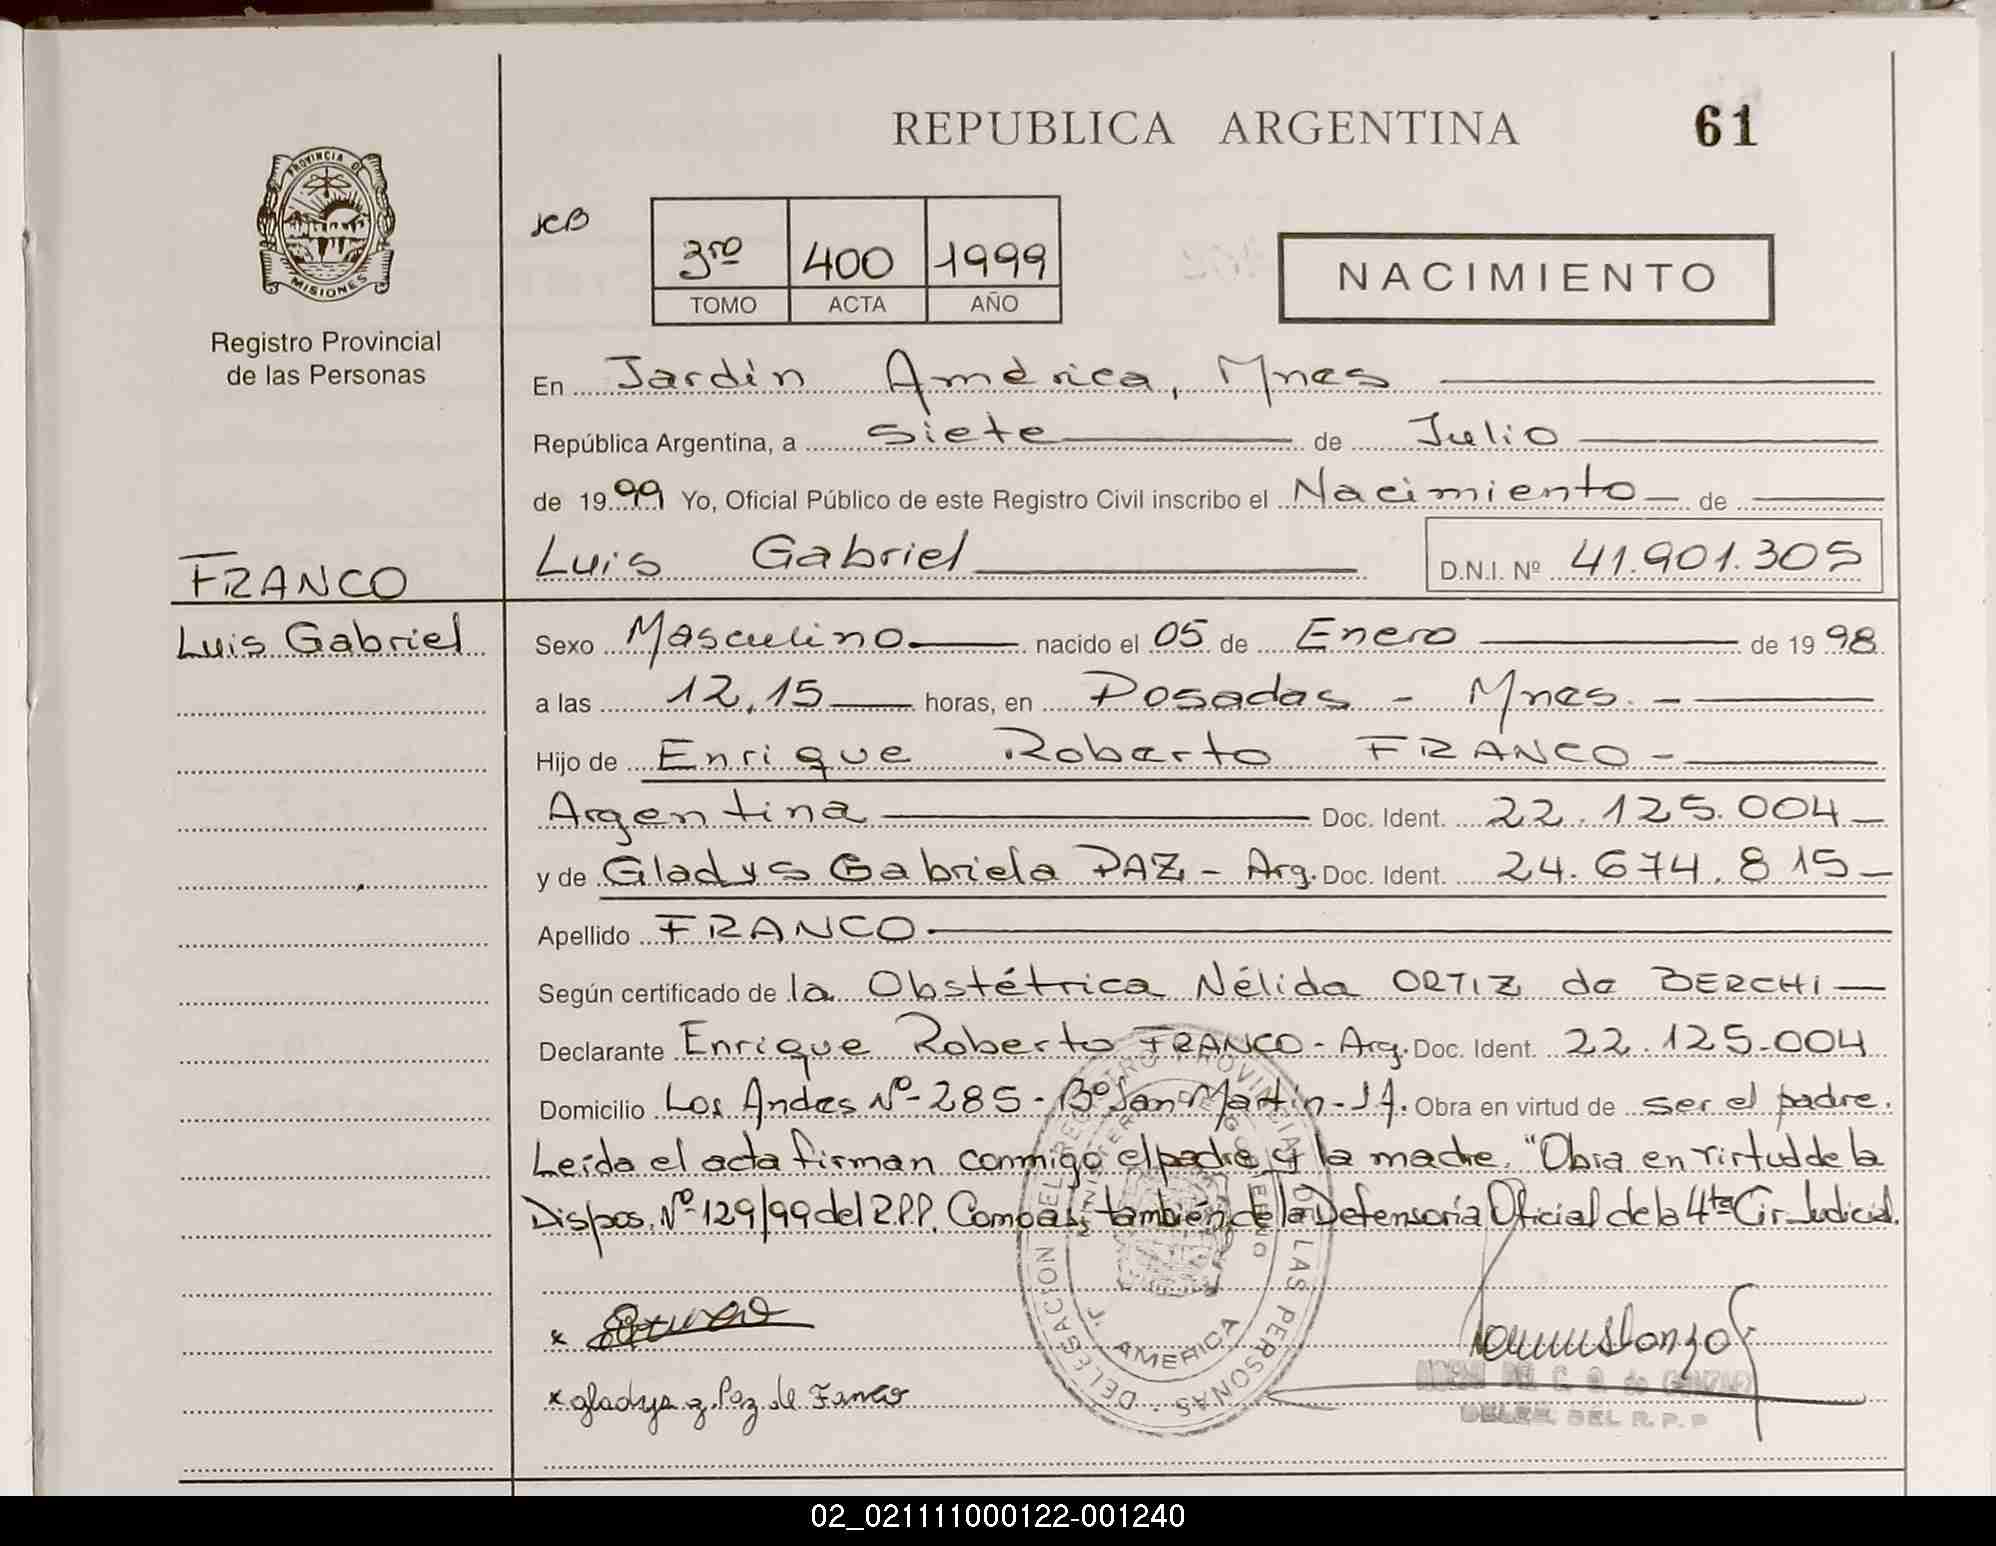 REPUBLICA ARGENTINA 61
PROVINCIA DE MISIONES
Registro Provincial
de las Personas
JCB
3ro 400 1999
TOMO ACTA AÑO
NACIMIENTO
En Jardín América, Mnes
República Argentina, a siete de Julio
de 1999 Yo, Oficial Público de este Registro Civil inscribo el Nacimiento de
Luis Gabriel D.N.I. Nº 41.901.305
FRANCO
Luis Gabriel
Sexo Masculino nacido el 05 de Enero de 1998
a las 12,15 horas, en Posadas - Mnes. -
Hijo de Enrique Roberto FRANCO -
Argentina Doc. Ident. 22.125.004 -
y de Gladys Gabriela PAZ - Arg. Doc. Ident. 24.674.815 -
Apellido FRANCO
Según certificado de la Obstétrica Nélida ORTIZ de BERCHI
Declarante Enrique Roberto FRANCO - Arg. Doc. Ident. 22.125.004
Domicilio Los Andes Nº 285 - Bº San Martín - J A. Obra en virtud de ser el padre.
Leída el acta firman conmigo el padre y la madre. "Obra en virtud de la
Dispos. Nº 129/99 del R.P.P. también de la Defensoría Oficial de la 4ta Cir. Judicial.
DELEGACION DEL REGISTRO PROVINCIAL DE LAS PERSONAS
MINISTERIO DE GOBIERNO
J. AMERICA
x gladys g. Paz de Franco
DELEG. DEL R. P. P
02_021111000122-001240